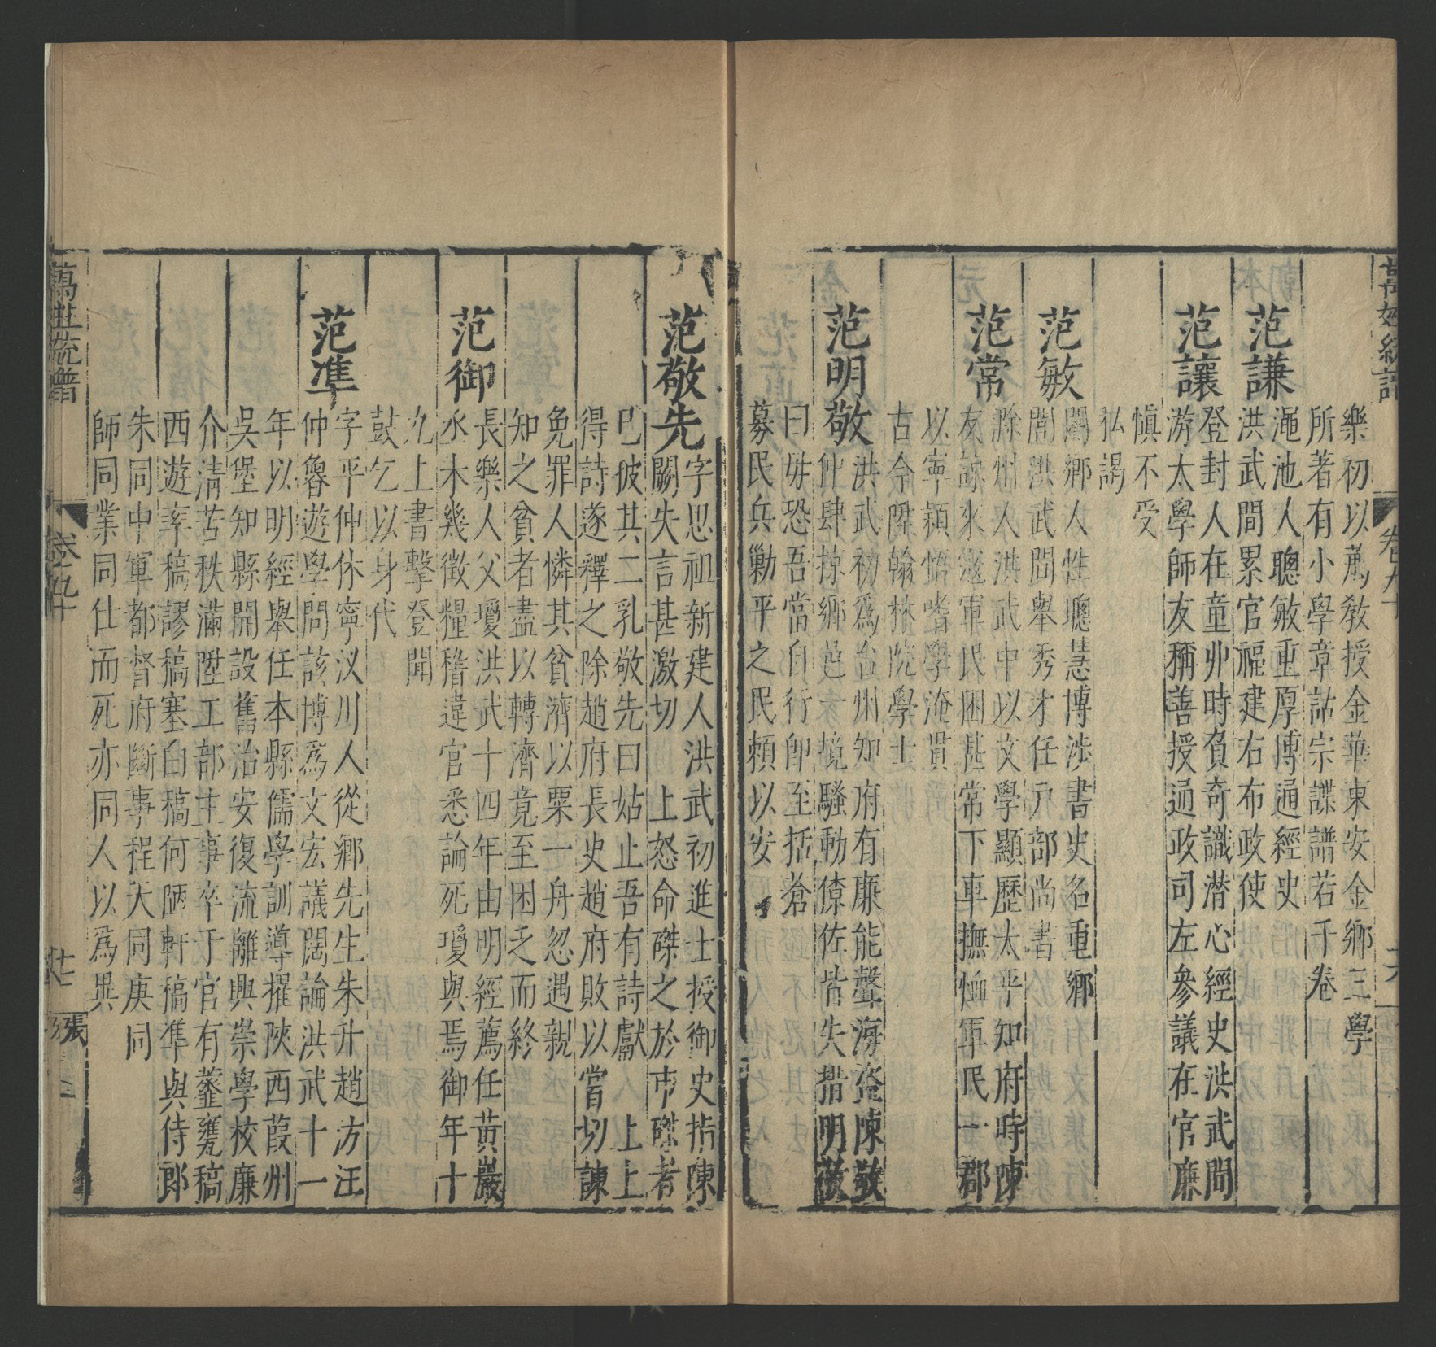 萬姓統譜 卷九十 六
樂初以薦敎授金華東安金鄉三學
所著有小學章詁宗諜譜若干卷
范謙
澠池人聰敏重厚博通經史
洪武間累官福建右布政使
范讓
登封人在童丱時負奇識潜心經史洪武間
游太學師友稱善授通政司左參議在官廉
慎不受
私謁
范敏
閿鄉人性聰慧博渉書史名重鄉
閭洪武間舉秀才任戸部尚書
范常
滁州人洪武中以文學顯歷太平知府時陳
友諒來寇軍民困甚常下車撫恤軍民一郡
以寧穎悟嗜學淹貫
古今陞翰林院學士
范明敬
洪武初爲台州知府有廉能聲海盗陳敬
仲肆掠鄉邑境騷動僚佐皆失措明敬
曰毋恐吾當自行卽至括蒼
募民兵勦平之民頼以安
范敬先
字思祖新建人洪武初進士授御史指陳
闕失言甚激切 上怒命磔之於市磔者
巳披其二乳敬先曰姑止吾有詩獻 上上
得詩遂釋之除趙府長史趙府敗以嘗切諫
免罪人憐其貧濟以粟一舟忽遇親
知之貧者盡以轉濟竟至困乏而終
范御
長樂人父瓊洪武十四年由明經薦任黃巖
丞木幾徵糧稽違官悉論死瓊與焉御年十
九上書擊登聞
鼓乞以身代
范準
字平仲休寧汊川人從鄉先生朱升趙方汪
仲魯遊學問該博爲文宏議闊論洪武十一
年以明經舉任本縣儒學訓導擢陝西葭州
吳堡知縣開設舊治安復流離興崇學校廉
介清苦秩滿陞工部主事卒于官有虀甕稿
西遊率稿謬稿塞白稿何陋軒稿準與侍郎
朱同中軍都督府斷事程大同庚同
師同業同仕而死亦同人以爲異
萬姓統譜 卷九十 廿七